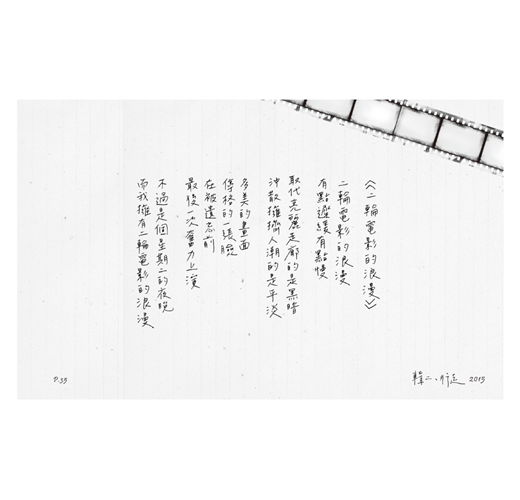 《二輪電影的浪漫》
二輪電影的浪漫
有點遲緩有點慢
取代亮麗走廊的是黑暗
沖散擁擠人潮的是平淡
多美的畫面
停格的一張臉
在被遺忘前
最後一次奮力上演
不過是個星期二的夜晚
而我擁有二輪電影的浪漫
輯二、行走 2015
P.35